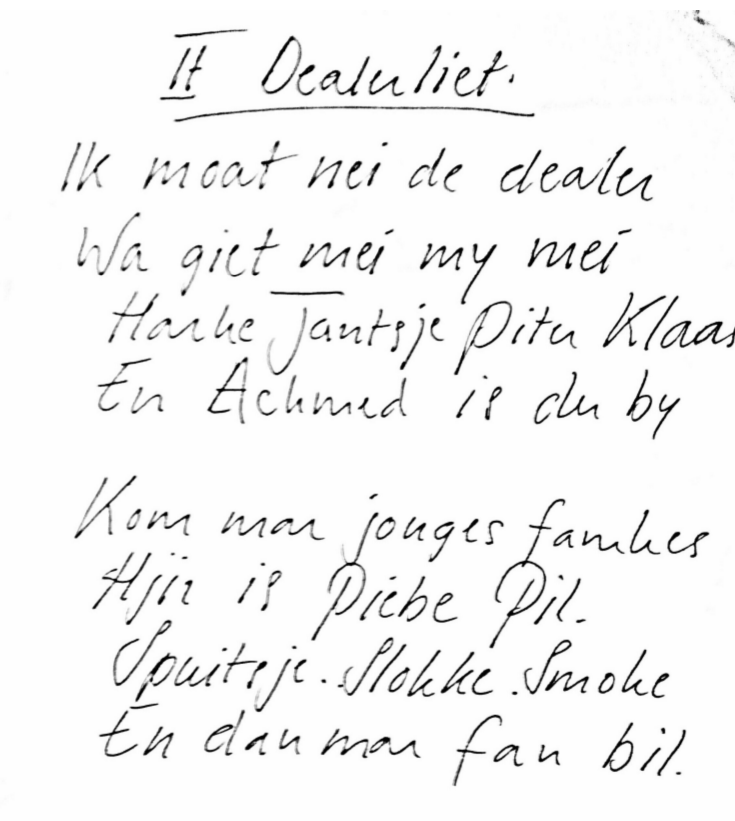 It Dealerliet.
Ik moat nei de dealer
Wa giet mei my mei
Harke Jantsje Piter Klaas
En Achmed is der by
Kom mar jonges famkes
Hjir is Piebe Pil.
Spuitsje. Slokke. Smoke
En dan mar fan bil.